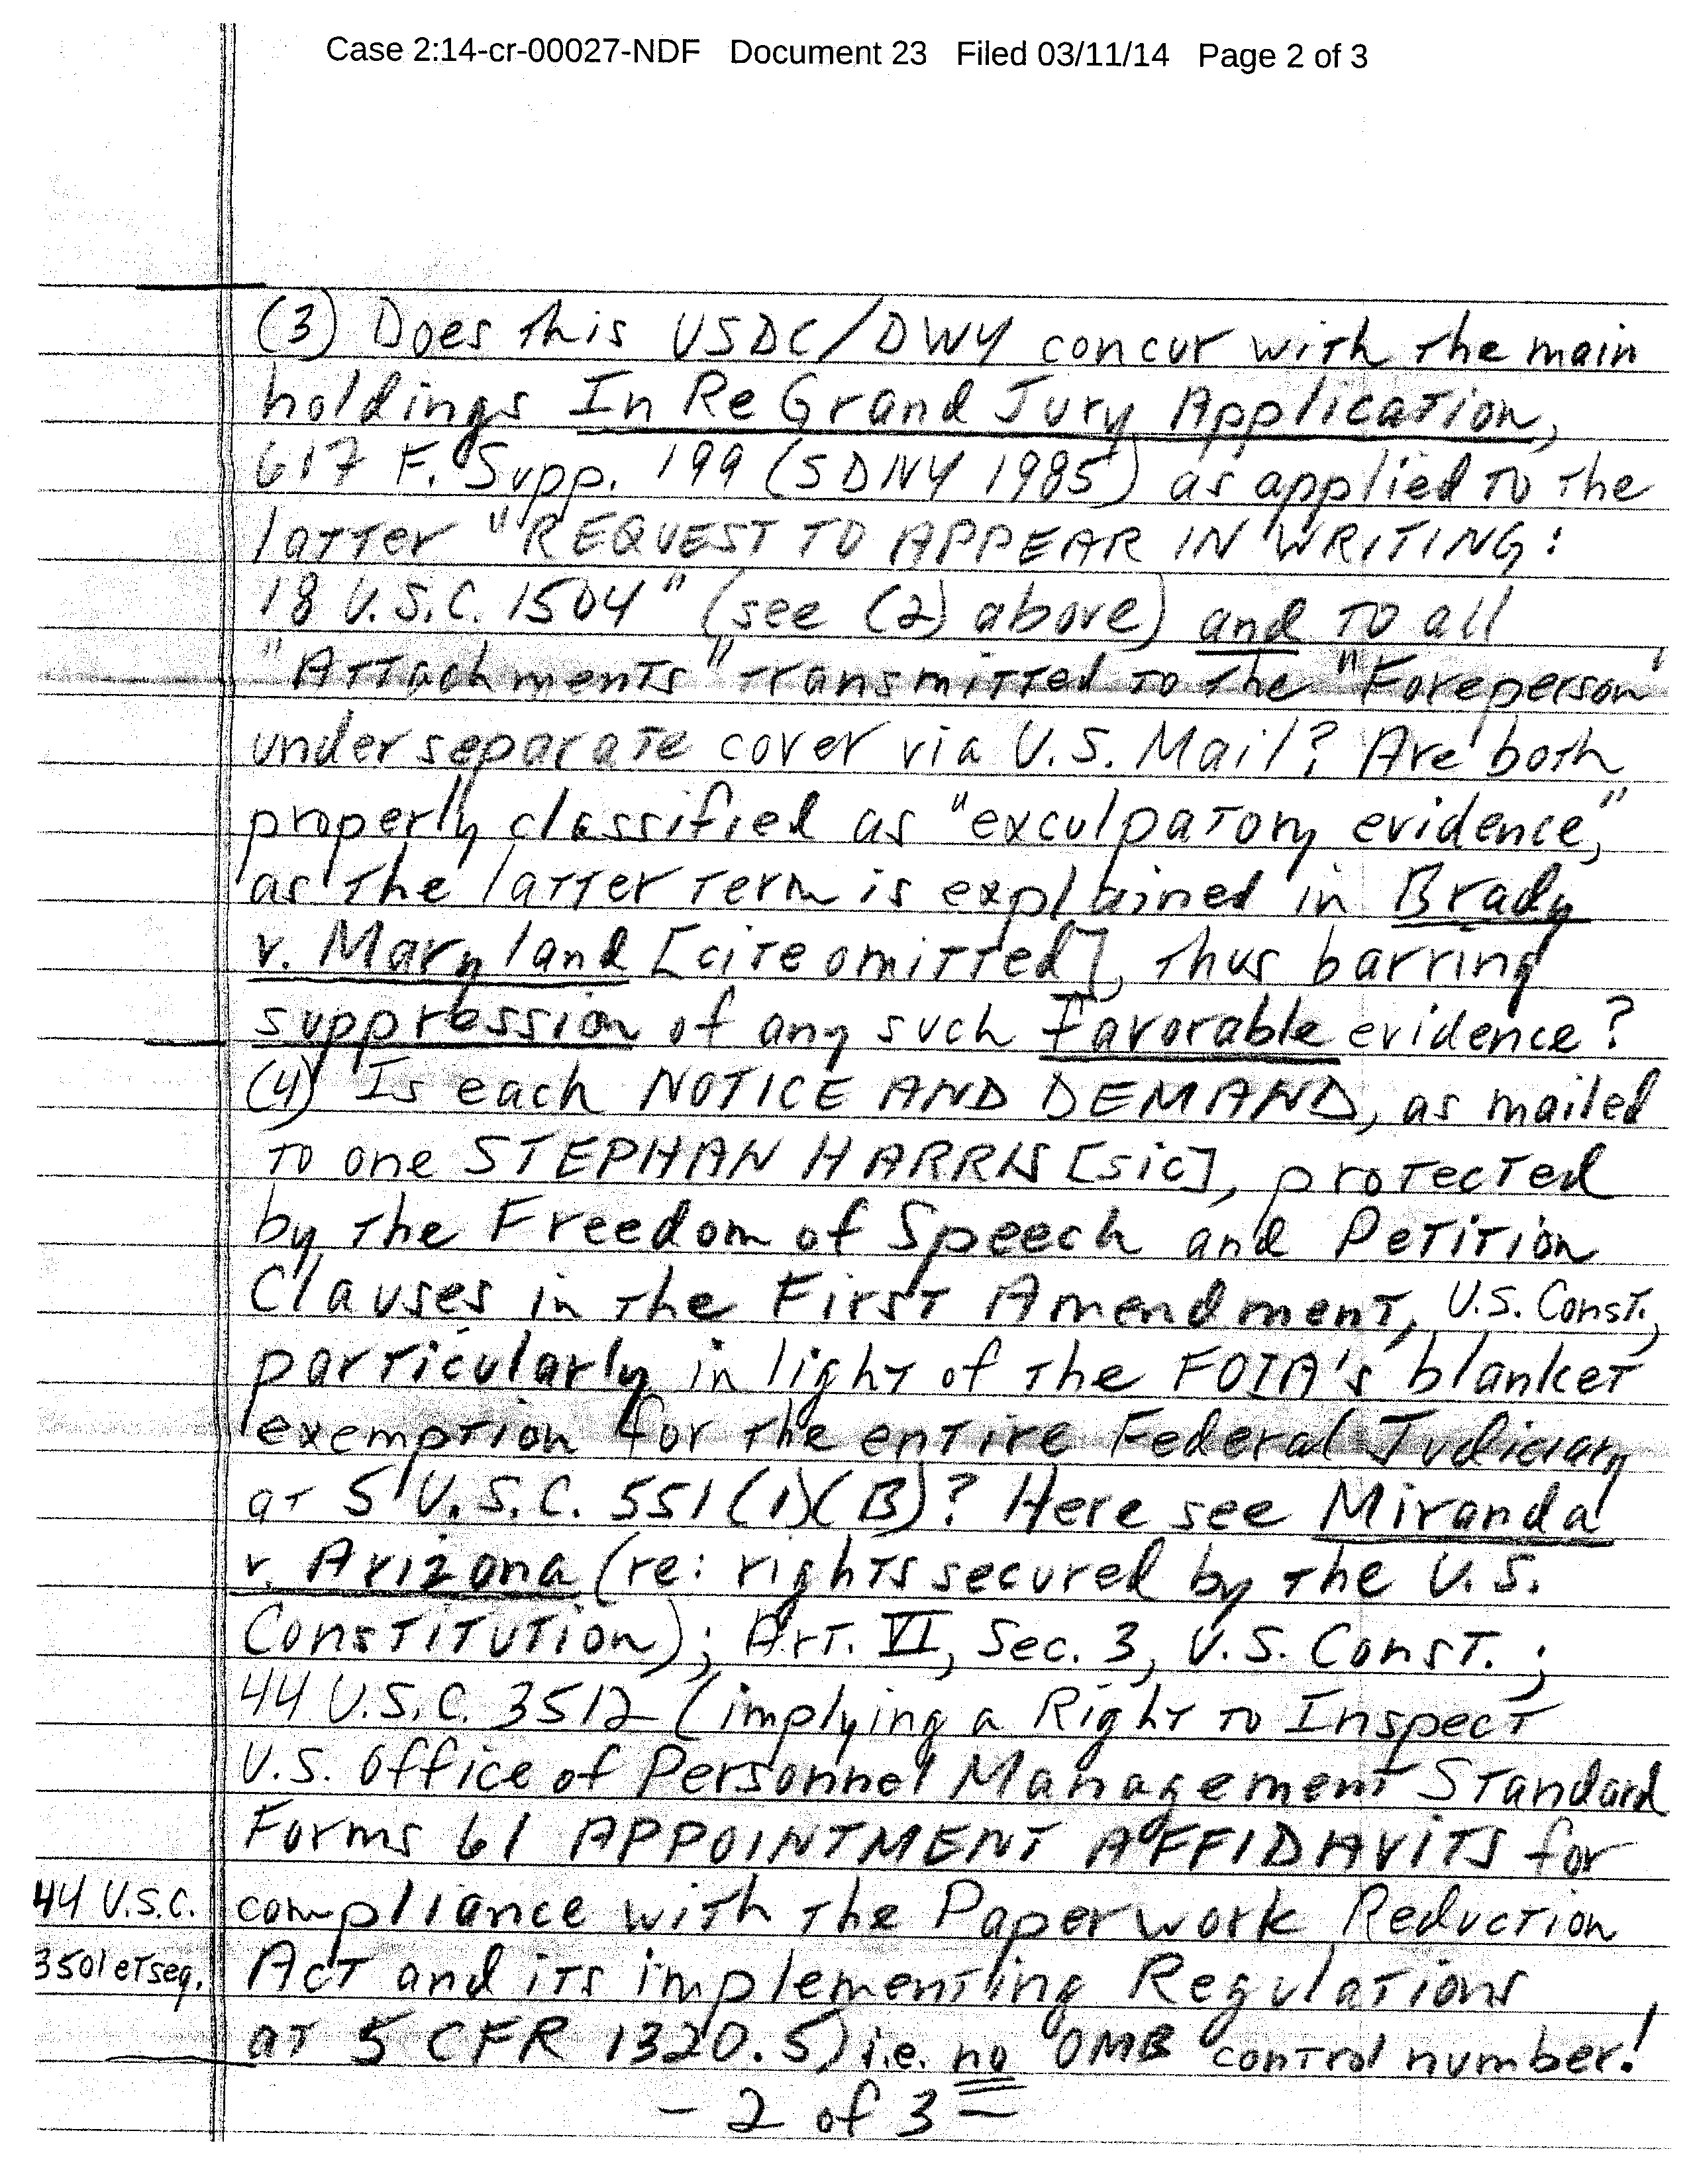 Case 2:14-cr-00027-NDF Document 23 Filed 03/11/14 Page 2 of 3
(3) Does this USDC/DWY concur with the main
holdings In Re Grand Jury Application,
617 F. Supp. 199 (SDNY 1985) as applied to the
latter "REQUEST TO APPEAR IN WRITING:
18 U.S.C. 1504" (see (2) above) and to all
"Attachments" transmitted to the "Foreperson"
under separate cover via U.S. Mail? Are both
properly classified as "exculpatory evidence,"
as the latter term is explained in Brady
v. Maryland [cite omitted], thus barring
suppression of any such favorable evidence?
(4) Is each NOTICE AND DEMAND, as mailed
to one STEPHAN HARRIS [sic], protected
by the Freedom of Speech and Petition
Clauses in the First Amendment, U.S. Const.,
particularly in light of the FOIA's blanket
exemption for the entire Federal Judiciary
at 5 U.S.C. 551(1)(B)? Here see Miranda
v. Arizona (re: rights secured by the U.S.
Constitution); Art. VI, Sec. 3, U.S. Const.;
44 U.S.C. 3512 (implying a Right to Inspect
U.S. Office of Personnel Management Standard
Forms 61 APPOINTMENT AFFIDAVITS for
44 U.S.C. compliance with the Paperwork Reduction
3501 et seq. Act and its implementing Regulations
at 5 CFR 1320.5) i.e. no OMB control number!
- 2 of 3 -